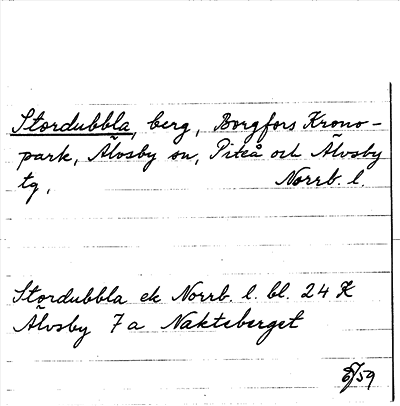 Stordubbla, berg, Borgfors Krono-
park, Älvsby sn, Piteå och Älvsby
tg, Norrb. l.
Stordubbla ek Norrb. l. bl. 24 K
Älvsby 7a Nakteberget
/59